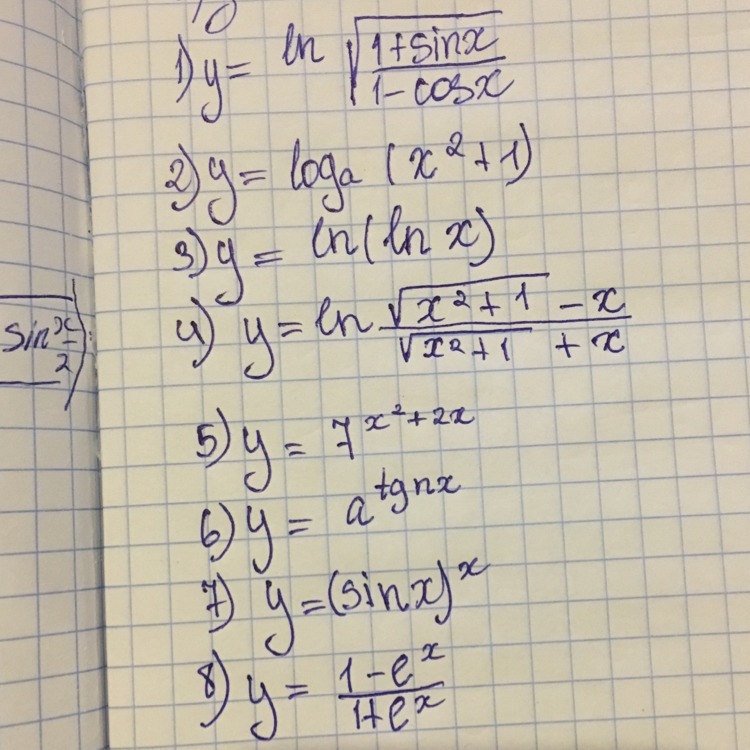 1) y = ln √((1+sinx)/(1-cosx))
2) y = logₐ (x²+1)
3) y = ln(ln x)
4) y = ln (√(x²+1) - x)/(√(x²+1) + x)
sin x/2)
5) y = 7^(x²+2x)
6) y = a^(tgnx)
7) y = (sinx)^x
8) y = (1-e^x)/(1+e^x)